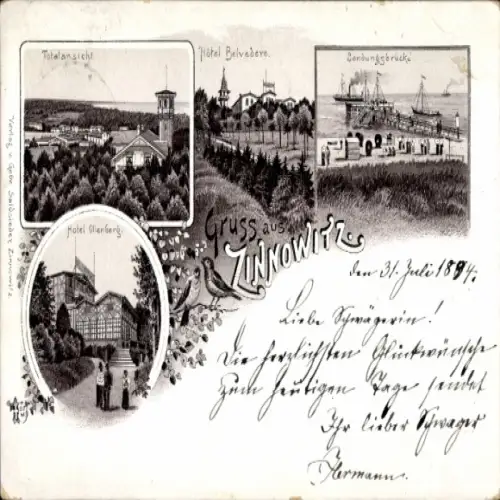 Totalansicht
Hôtel Belvedere.
Landungsbrücke
Hotel Glienberg.
Verlag v. Gebr.
Zinnowitz
Gruss aus
ZINNOWITZ.
den 31. Juli 1894.
Liebe Schwägerin!
Die herzlichsten Glückwünsche
zum heutigen Tage sendet
Ihr lieber Schwager
Hermann.